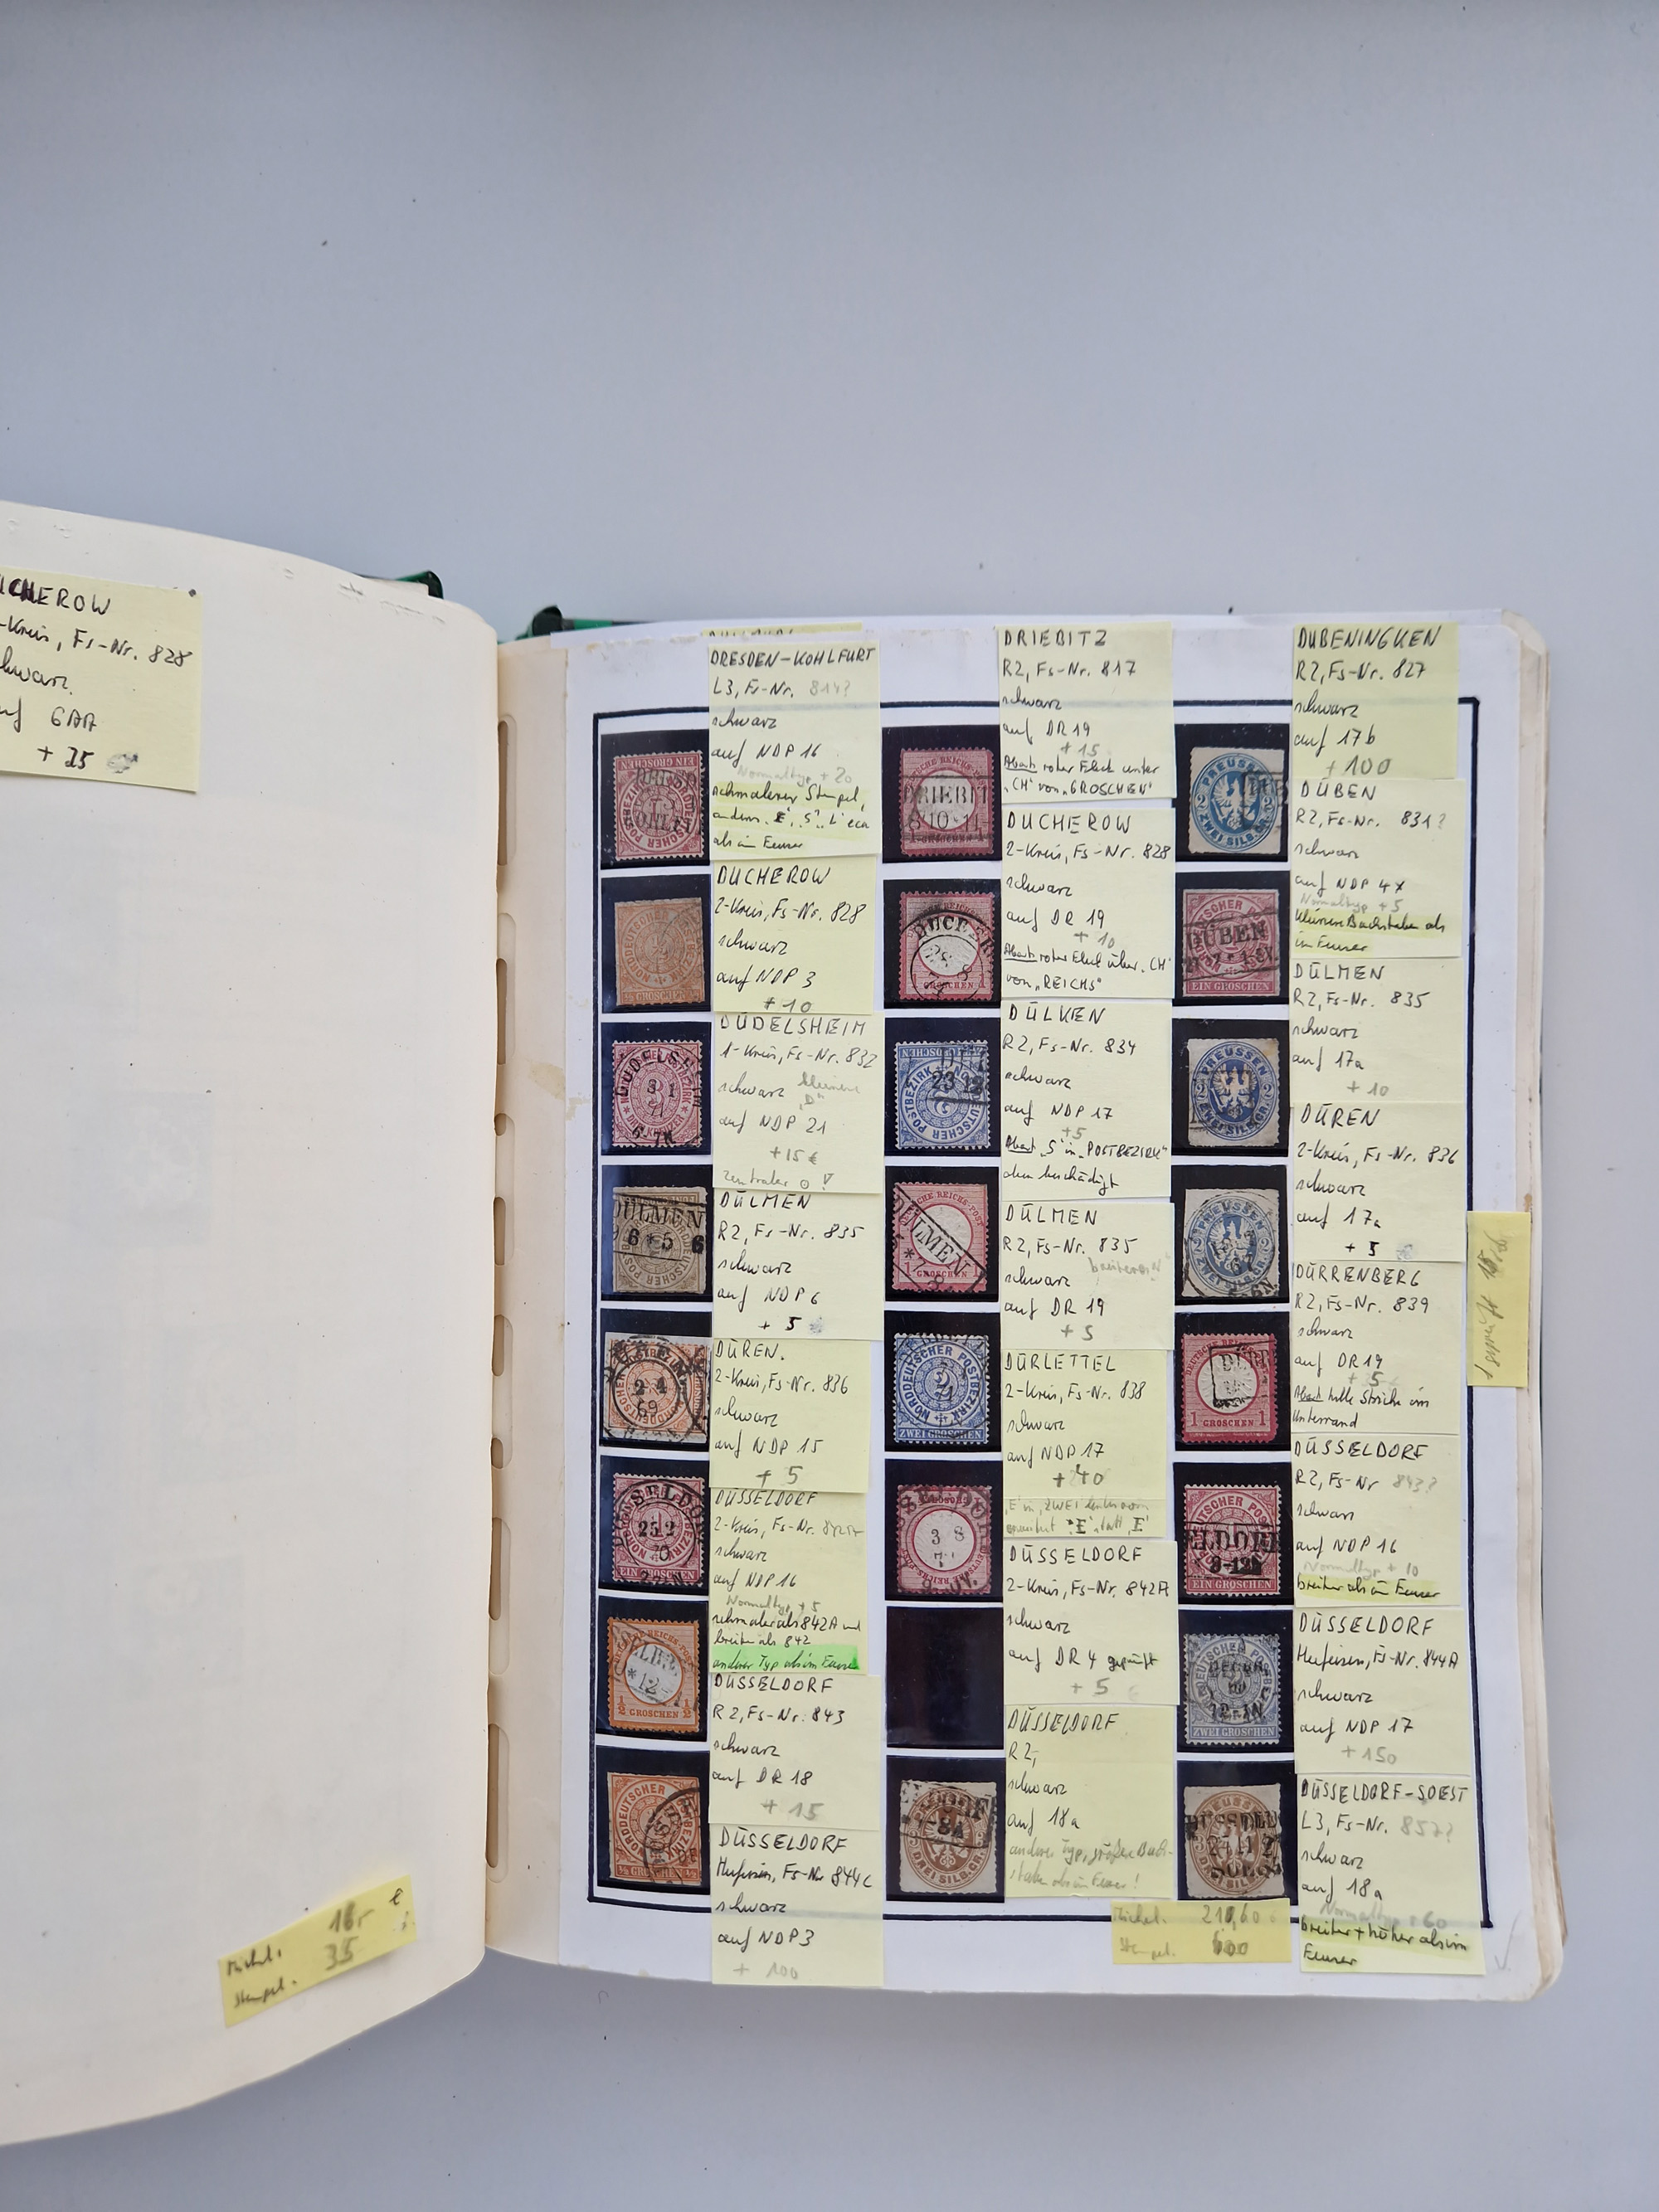 CHEROW
-Kreis, Fs-Nr. 828
schwarz
auf 6AA
+ 25
Michel.
Stempel. 35
DRESDEN-KOHLFURT
L3, Fs-Nr. 814?
schwarz
auf NDP 16
Normaltyp + 20
schmalerer Stempel,
anderes "E", "S", "L" etc.
als im Feuser
DUCHEROW
2-Kreis, Fs-Nr. 828
schwarz
auf NDP 3
+ 10
DÜDELSHEIM
1-Kreis, Fs-Nr. 832
schwarz kleineres
"D"
auf NDP 21
+15 €
zentraler
DÜLMEN
R2, Fs-Nr. 835
schwarz
auf NDP 6
+ 5
DÜREN.
2-Kreis, Fs-Nr. 836
schwarz
auf NDP 15
+ 5
DÜSSELDORF
2-Kreis, Fs-Nr.
schwarz
auf NDP 16
Normaltyp + 5
schmaler als 842A und
breiter als 842
anderer Typ als im Feuser
DÜSSELDORF
R2, Fs-Nr. 843
schwarz
auf DR 18
+ 15
DÜSSELDORF
Hufeisen, Fs-Nr 844C
schwarz
auf NDP3
+ 100
DRIEBITZ
R2, Fs-Nr. 817
schwarz
auf DR 19
+ 15
Abart: roter Fleck unter
"CH" von "GROSCHEN"
DUCHEROW
2-Kreis, Fs-Nr. 828
schwarz
auf DR 19
+ 10
Abart: roter Fleck über "CH"
von "REICHS"
DÜLKEN
R2, Fs-Nr. 834
schwarz
auf NDP 17
+5
Abart "S" in "POSTBEZIRK"
oben beschädigt
DÜLMEN
R2, Fs-Nr. 835
schwarz
auf DR 19
+ 5
DÜRLETTEL
2-Kreis, Fs-Nr. 838
schwarz
auf NDP 17
+40
DÜSSELDORF
2-Kreis, Fs-Nr. 842A
schwarz
auf DR 4 geprüft
+ 5 €
DÜSSELDORF
R2,
schwarz
auf 18a
anderer Typ, größere Buch-
staben als im Feuser!
Michel. 210,60
Stempel. 600
DUBENINGKEN
R2, Fs-Nr. 827
schwarz
auf 17b
+ 100
DÜBEN
R2, Fs-Nr. 831?
schwarz
auf NDP 4x
Normaltyp + 5
kleinere Buchstaben als
im Feuser
DÜLMEN
R2, Fs-Nr. 835
schwarz
auf 17a
+ 10
DÜREN
2-Kreis, Fs-Nr. 836
schwarz
auf 17a
+ 5
DÜRRENBERG
R2, Fs-Nr. 839
schwarz
auf DR19
+ 5
Abart helle Striche im
Unterrand
DÜSSELDORF
R2, Fs-Nr 843?
schwarz
auf NDP 16
Normaltyp + 10
breiter als im Feuser
DÜSSELDORF
Hufeisen, Fs-Nr. 844A
schwarz
auf NDP 17
+ 150
DÜSSELDORF-SOEST
L3, Fs-Nr. 857?
schwarz
auf 18a
Normaltyp + 60
breiter + höher als im
Feuser
DÜBEN
DÜLMEN
6 5 6
EIN GROSCHEN
ZWEI GROSCHEN
1 GROSCHEN 1
1/2 GROSCHEN 1/2